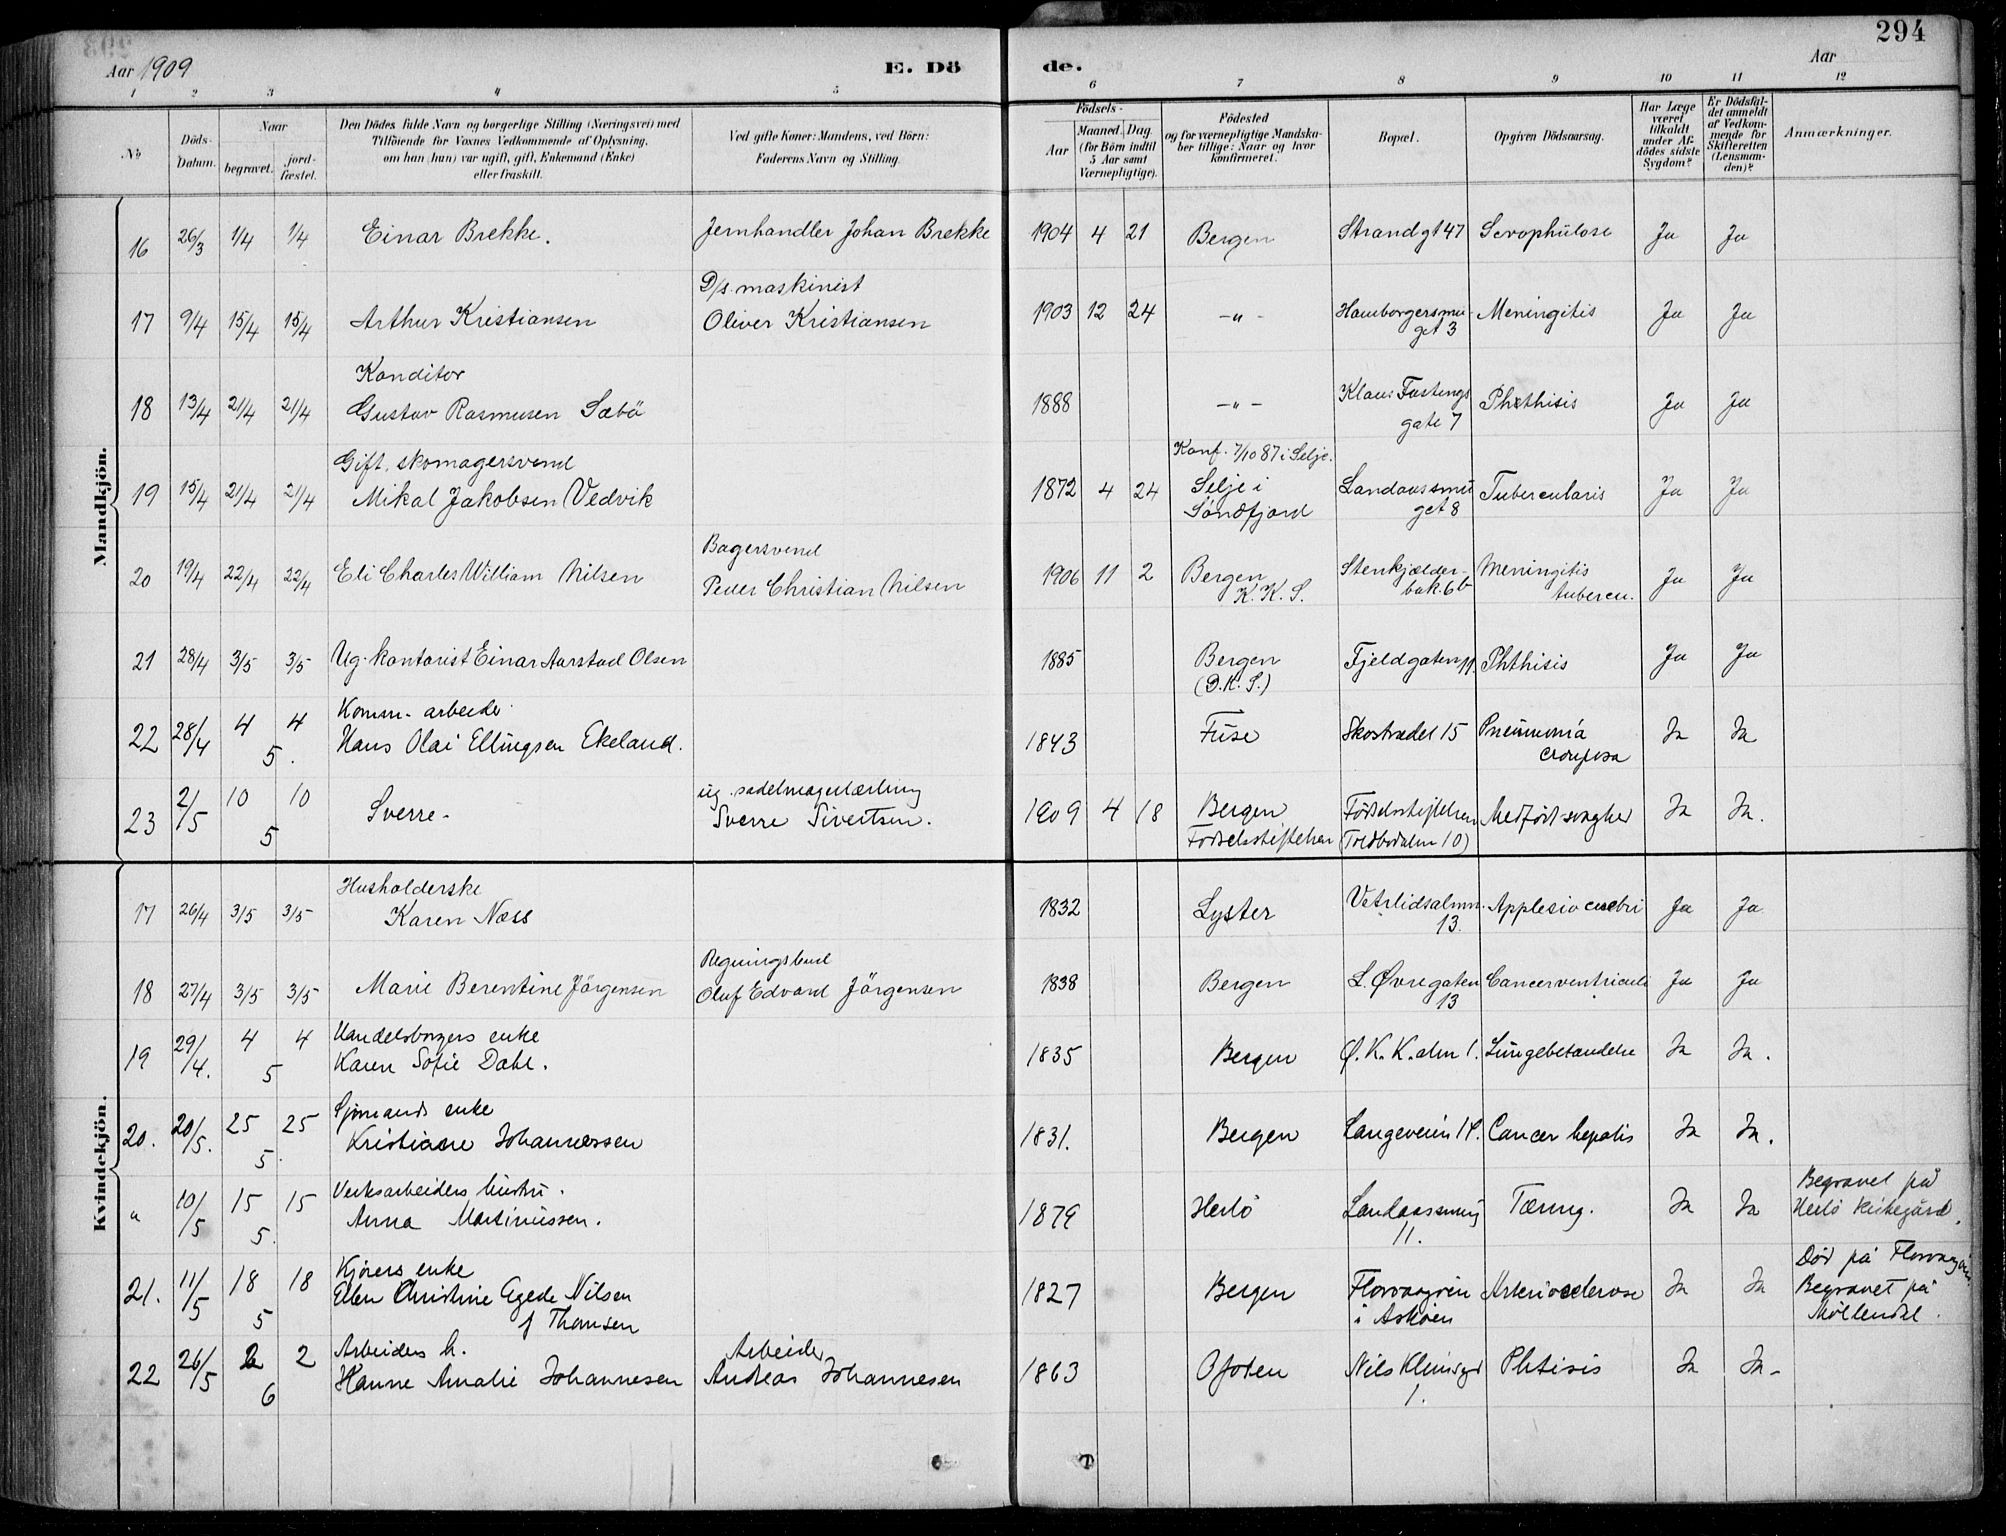 294
Aar 1909 E. Dö de. Aar
1 2 3 4 5 6 7 8 9 10 11 12
No
Döds-
Datum.
Naar
begravet.
jord-
fæstet.
Den Dödes fulde Navn og borgerlige Stilling (Næringsvei) med
Tilföiende for Voxnes Vedkommende af Oplysning,
om han (hun) var ugift, gift, Enkemand (Enke)
eller fraskilt.
Ved gifte Koner: Mandens, ved Börn:
Faderens Navn og Stilling.
Födsels-
Aar
Maaned. Dag.
(for Börn indtil
5 Aar samt
Værnepligtige).
Födested
og for værnepligtige Mandska-
ber tillige: Naar og hvor
konfirmeret.
Bopæl.
Opgiven Dödsaarsag.
Har Læge
været
tilkaldt
under Af-
dödes sidste
Sygdom?
Er Dödsfal-
det anmeldt
af Vedkom-
mende for
Skifteretten
(Lensman-
den)?
Anmærkninger.
Mandkjön.
16 26/3 1/4 1/4 Einar Brekke. Jernhandler Johan Brekke 1904 4 21 Bergen Strandgt 47 Scrophulose Ja Ja
D/s. maskinist
17 9/4 15/4 15/4 Arthur Kristiansen Oliver Kristiansen 1903 12 24 -"- Hamborgersmu- Meningitis Ja Ja
get 3
Konditor
18 13/4 21/4 21/4 Gustav Rasmusen Sæbö 1888 -"- Klaus Fastings Phthisis Ja Ja
gate 7
Gift. skomagersvend Konf. 7/10 87 i Selje.
19 15/4 21/4 21/4 Mikal Jakobsen Vedvik 1872 4 24 Selje i Landaassmu Tubercularis Ja Ja
Söndfjord get 8
Bagersvend
20 19/4 22/4 22/4 Eli Charles William Nilsen Peder Christian Nilsen 1906 11 2 Bergen Stenkjælder- Meningitis Ja Ja
K. K. S. bak. 6b tubercu.
21 28/4 3/5 3/5 Ug. kontorist Einar Aarstad Olsen 1885 Bergen Fjeldgaten 11. Phthisis Ja Ja
(D. K. S.)
Komm. arbeider
22 28/4 4 4 Hans Olai Ellingsen Ekeland. 1843 Fuse Skostrædet 15 Pneumonia Ja Ja
5. crouposa
ug. sadelmagerlærling
23 2/5 10 10 Sverre. Sverre Sivertsen. 1909 4 18 Bergen Fødselsstiftelsen Medfødt svaghed Ja Ja.
5 Fødselsstiftelsen (Toldbodalm 10)
Kvindekjön.
Husholderske
17 26/4 3/5 3/5 Karen Næss 1832 Lyster Vetrlidsalmn. Applexio cerebri Ja Ja
13.
Regningsbud
18 27/4 3/5 3/5 Marie Berentine Jörgensen Oluf Edvard Jörgensen 1838 Bergen L. Øvregaten Cancer ventriculi Ja Ja
13
Handelsborgers enke
19 29/4. 4 4 Karen Sofie Dahl. 1835 Bergen Ø. K. K. alm 1. Lungebetændelse Ja Ja.
5
Sjømands enke
20. 20/5. 25 25 Kristiane Johannessen 1831. Bergen Langeveien 14. Cancer hepatis Ja Ja.
5.
Verksarbeiders hustru. Begravet på
" 10/5 15 15 Anna Martinussen. 1879 Herlö Landaassmug Tæring. Ja Ja Herlö kirkegård.
5. 11.
Kjørers enke Død på Florvaagøen
21. 11/5 18 18 Ellen Christine Egede Nilsen 1827 Bergen Florvaagøen Arteriosclerose Ja Ja Begravet på
5 f Thomsen i Askøen Møllendal.
Arbeiders h. Arbeider
22 26/5 2 2 Hanne Amalie Johannesen Andreas Johannesen 1863 Ofoten Nils Klimsgd Phtisis Ja Ja-
6 1.